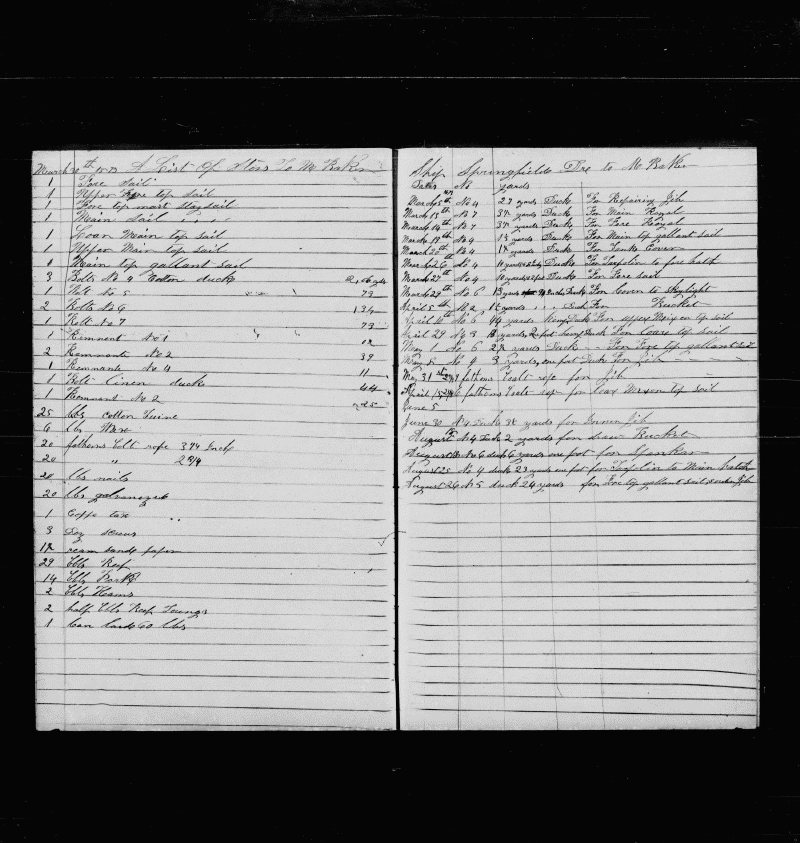 March 30th 1873 A List Of Stors To Mr Baker
1 Fore Sail
1 Upper Fore top sail
1 Fore top mast Staysail
1 Main Sail
1 Loar Main top sail
1 Upper Main top sail
1 Main top gallant sail
3 Bolts No 4 Cotton duck
1 Bolt No 5 " " 73
2 Bolts No 6 134
1 Bolt No 7 " " 73
1 Remnent No 1 12
2 Remnants No 2 39
1 Remnante No 4 11
1 Bolt linen duck 44
1 Remnant No 2 25
25 lbs Cotton Twine
6 lb Wax
20 fathoms Bolt rope 3 3/4 Inch
20 " 2 3/4
20 lbs nails
20 lbs galvanezed
1 tax
3 Doz screws
1/2 ream sand paper
29 Bbls Beef
14 Bbls Pork
2 Bbls Hams
2 half Bbls Beef Toungs
1 Can Lard 60 lbs
Ship Springfields Dre to Mr Baker
No yards
March 5th No 4 27 yards Duck For Repairing Jib
March 13th No 7 37 yards Duck For Main Royal
March 14th No 7 37 yards Duck For Fore Royal
March 19th No 4 1½ yards Duck For Main top gallant sail
March 20th No 4 yards Duck For Tank Cover
March 26th No 4 yards Duck For Tarpolin to fore hatch
March 27th No 4 yards Duck For Fore sail
March 29th No 6 13 yards Duck For Cover to Skylight
April 5th No 2 yards Duck For Bucket
April 10th No 6 14 yards heavy Duck For upper Mizen top sail
April 29 No 3 yards 2 foot heavy Duck For Loar top sail
May 1 No 6 27 yards Duck For Fore top gallant sail
May No 4 3 yards one foot Duck For Jib
May 31st 27 fathoms Bolt rope for Jib
April 15 6 fathoms Bolt rope for Loar Mizen top sail
June 5
June 30 No 4 Duck 38 yards for Inner Jib
August 4th No 4 Duck 2 yards for draw Bucket
August No 6 duck 6 yards one foot for Spanker
August 25 No 4 duck 23 yards one foot for Tarpolin to Main hatch
August 26 No 5 duck 24 yards for Fore top gallant sail Jib